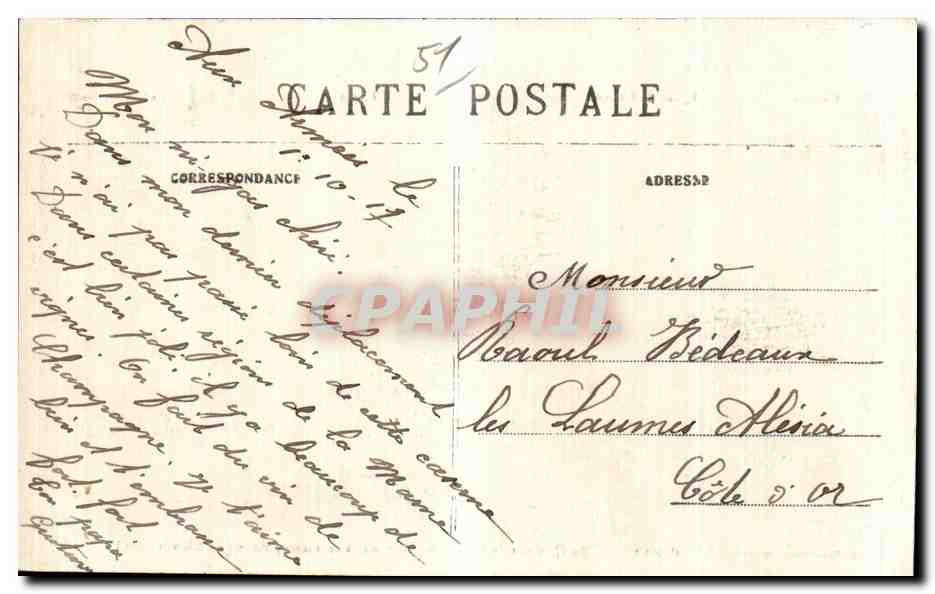 51
CARTE POSTALE
CORRESPONDANCE
ADRESSE
Aux Armées le
1° 10-17
Mon mi gas chéri.
Dans mon dernier déplacement
n'ai pas passé loin de cette caserne
Dans certaines régions de la Marne
c'est bien joli il y a beaucoup de
vignes. On fait du vin de
Champagne. Je t'aime
bien et t'embrasse
fort fort
Ton papa
Gaston
Monsieur
Raoul Bédeaux
les Laumes Alésia
Côte d'Or
CPAPHIL